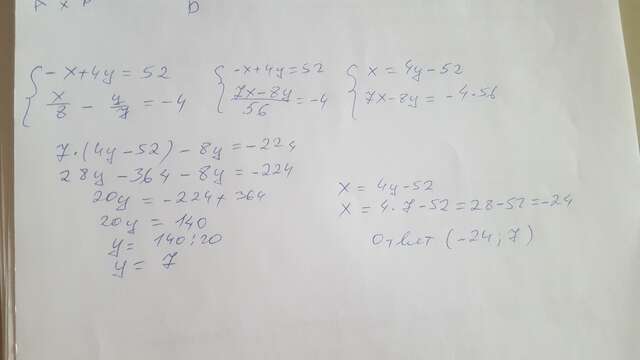 { -x+4y=52
x/8 - y/7 = -4
{ -x+4y=52
(7x-8y)/56 = -4
{ x = 4y-52
7x-8y = -4·56
7·(4y-52)-8y=-224
28y-364-8y=-224
20y = -224+364
20y = 140
y= 140:20
y= 7
x = 4y-52
x = 4·7-52=28-52=-24
Ответ (-24; 7)